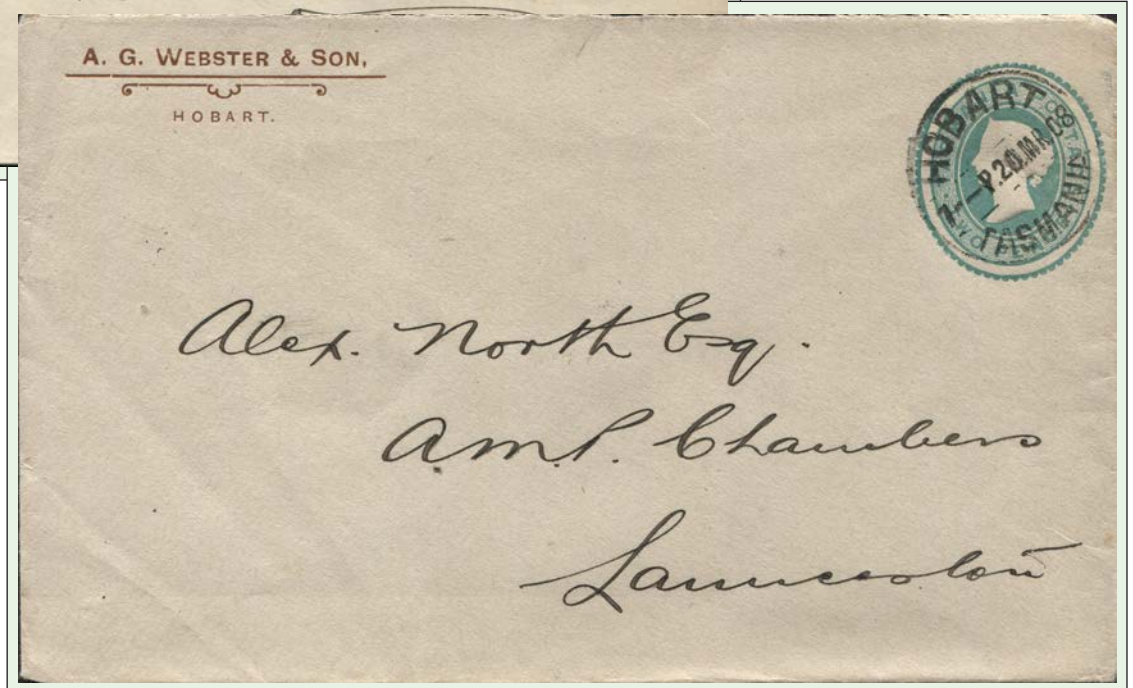 A. G. WEBSTER & SON,
HOBART.
HOBART
P.20.MR.08
TASMANIA
Alex. North Esq.
A.M.P. Chambers
Launceston